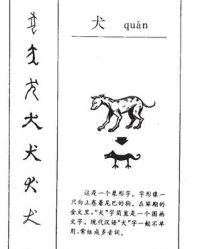 犬 quǎn
这是一个象形字。字形像一
只向上卷着尾巴的狗。在早期的
金文里，“犬”字简直是一个图画
文字。现代汉语“犬”字一般不单
用，常组成多音词。